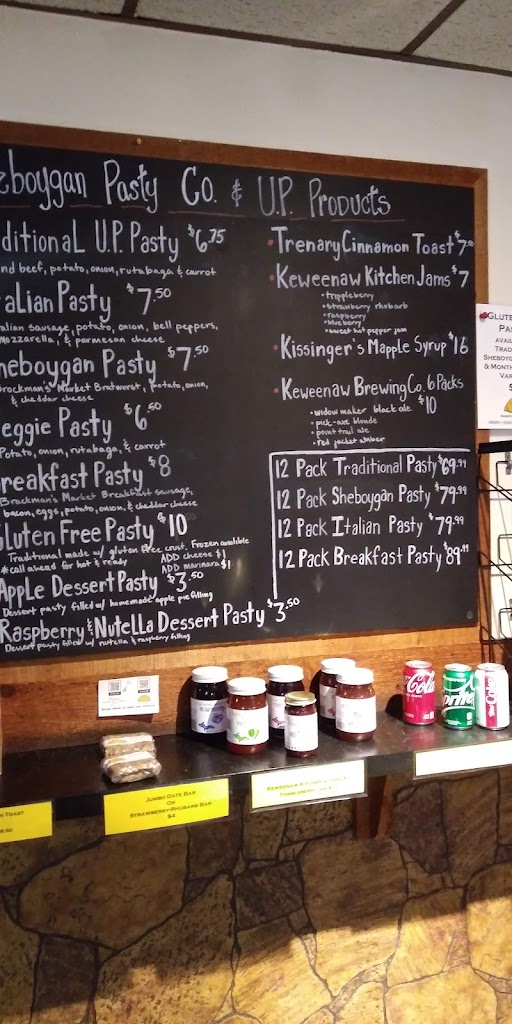 eboygan Pasty Co. & U.P. Products
ditional U.P. Pasty $6.75
nd beef, potato, onion, rutabaga & carrot
alian Pasty $7.50
alian sausage, potato, onion, bell peppers,
mozzarella, & parmesan cheese
heboygan Pasty $7.50
Brockman's Market Bratwurst, potato, onion,
& cheddar cheese
eggie Pasty $6.50
Potato, onion, rutabaga, & carrot
reakfast Pasty $8
Brockman's Market Breakfast sausage,
bacon, eggs, potato, onion, & cheddar cheese
Gluten Free Pasty $10
Traditional made w/ gluten free crust. Frozen available
*call ahead for hot & ready
ADD cheese $1
ADD marinara $1
Apple Dessert Pasty $3.50
Dessert pasty filled w/ homemade apple pie filling
Raspberry & Nutella Dessert Pasty $3.50
Dessert pasty filled w/ nutella & raspberry filling
Trenary Cinnamon Toast $7.50
Keweenaw Kitchen Jams $7
• trippleberry
• strawberry rhubarb
• raspberry
• blueberry
• sweet hot pepper jam
Kissinger's Mapple Syrup $16
Keweenaw Brewing Co. 6 Packs
$10
• widow maker black ale
• pick-axe blonde
• point trail ale
• red jacket amber
12 Pack Traditional Pasty $69.99
12 Pack Sheboygan Pasty $79.99
12 Pack Italian Pasty $79.99
12 Pack Breakfast Pasty $89.99
Glute
Pas
avail
Trad
Sheboyg
& Month
Var
$
Toast
Jumbo Date Bar
or
Strawberry Rhubarb Bar
$4
Keweenaw Kitchen
Cola
prite